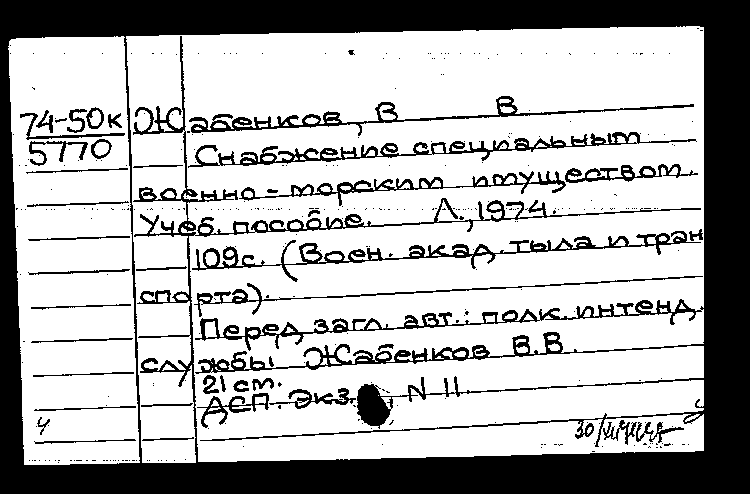 74-50к Жабенков, В В
5770 Снабжение специальным
военно-морским имуществом.
Учеб. пособие. Л., 1974.
109с. (Воен. акад. тыла и тран
спорта).
Перед загл. авт.: полк. интенд.
службы Жабенков В.В.
21 см.
ДСП. Экз. N 11.
ч 30/